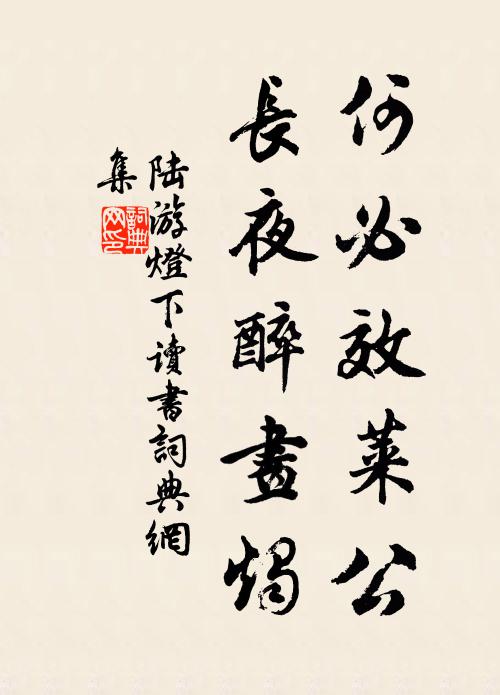 何必效莱公
長夜醉畫燭
陸游燈下讀書詞典網
集
詞典
网印